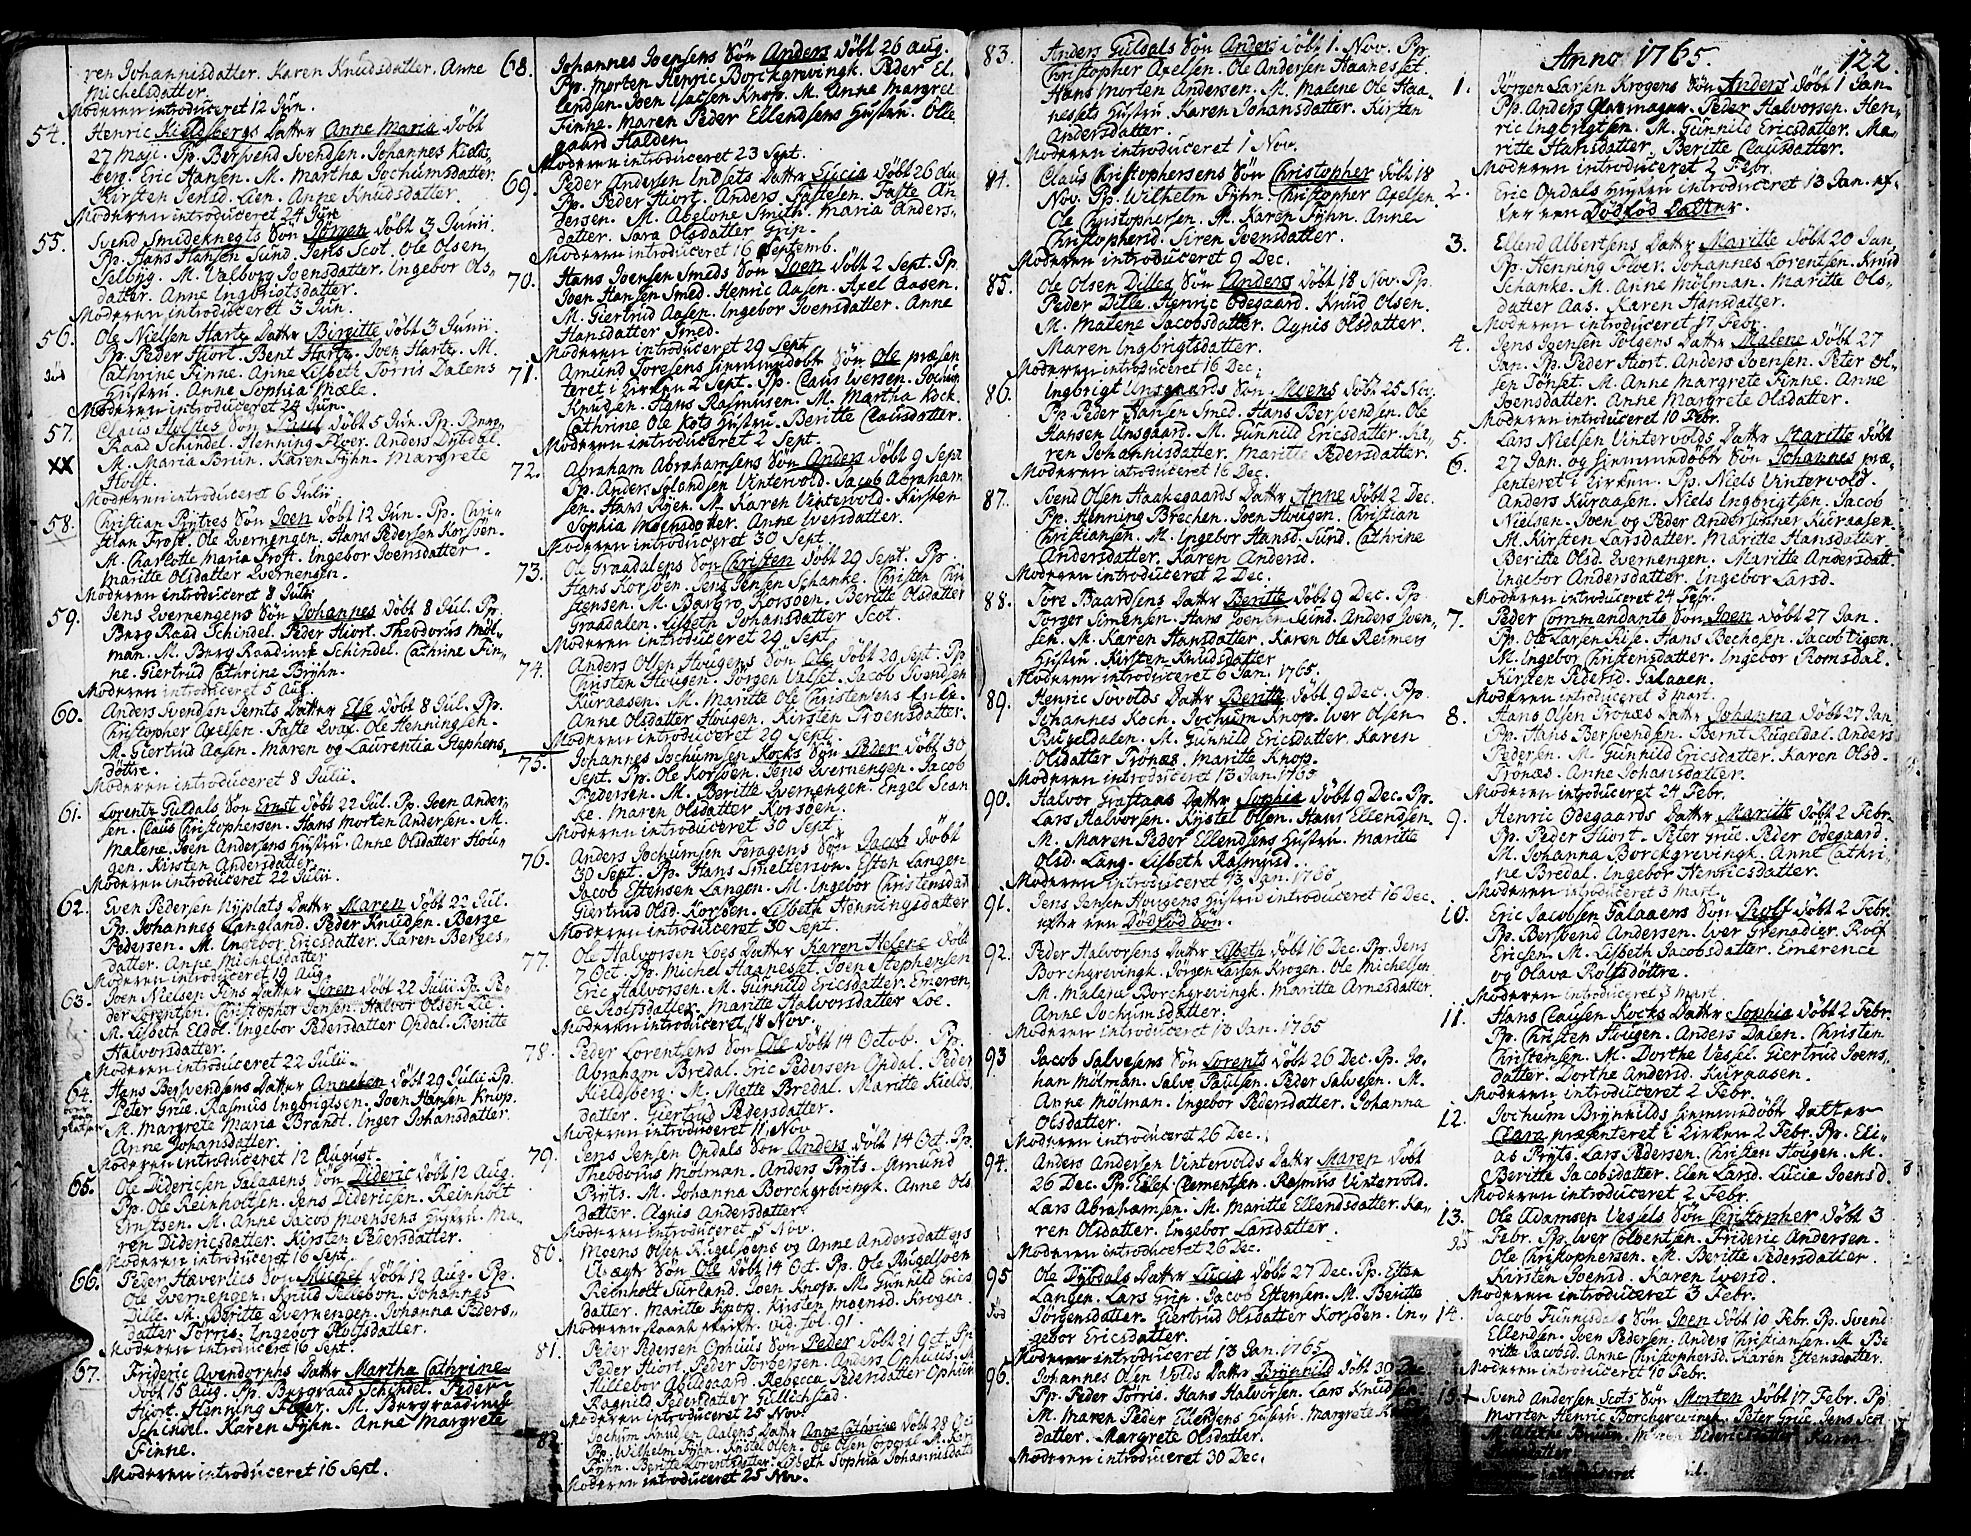 ren Johannisdatter. Karen Knudsdatter. Anne
Michelsdatter.
Moderen introduceret 12 Jun.
54. Henric Kieldsbergs Datter Anne Maria döbt
27 Maji. Pp. Bersvend Svendsen. Johannes Kields-
berg. Eric Hansen. M. Martha Jochumsdatter.
Kirsten Jensd. Lien. Anne Knudsdatter.
Moderen introduceret 24 Jun.
55. Svend Smideknegts Sön Jörgen döbt 3 Junii.
Pp. Hans Hansen Sund. Jens Scot. Ole Olsen
Selbyg. M. Valborg Joensdatter. Ingebor Ols-
datter. Anne Ingbrigtsdatter.
Moderen introduceret 3 Jun.
56. Ole Nielsen Hartz Datter Birgitte döbt 3 Junii.
Pp. Peder Hiort. Bent Hartz. Joen Hartz. M.
Cathrine Finne. Anne Lisbeth Torris Datens
Hustru. Anne Sophia Mæle.
Moderen introduceret 24 Jun.
57. Claus Holstes Sön Paul döbt 5 Jun. Pp. Berg-
XX Raad Schindel. Henning Floer. Anders Dybdal.
M. Maria Brun. Karen Fyhn. Margrete
Holst.
Moderen introduceret 6 Julii
58. Christian Prytzes Sön Joen döbt 12 Jun. Pp. Chri-
stian Frost. Ole Qvernengen. Hans Pedersen Korsöen.
M. Charlotte Maria Frost. Ingebor Joensdatter.
Maritte Olsdatter Qvernengen.
Moderen introduceret 8 Julii
59. Jens Qvernengens Sön Johannes döbt 8 Jul. Pp.
Berg Raad Schindel. Peder Hiort. Theodorus Möl-
man. M. Berg Raadinde Schindel. Cathrine Fin-
ne. Giertrud Cathrine Bryhn.
Moderen introduceret 5 Aug.
60. Anders Svendsen Jemts Datter Else döbt 8 Jul. Pp.
Christopher Axelsen. Faste Qvas. Ole Henningsen.
M. Giertrud Aasen. Maren og Laurentia Stephens
döttre.
Moderen introduceret 8 Julii.
61. Lorentz Guldals Sön Ernst döbt 22 Jul. Pp. Joen Ander-
sen. Claus Christophersen. Hans Morten Andersen. M.
Malene Joen Andersens Hustru. Anne Olsdatter Hou-
gen. Kirsten Andersdatter.
Moderen introduceret 22 Julii.
62. Even Pedersen Nyplats Datter Maren döbt 22 Jul.
Pp. Johannes Langland. Peder Knudsen. Berge
Pedersen. M. Ingebor Ericsdatter. Karen Berges-
datter. Anne Michelsdatter
Moderen introduceret 19 Aug.
63. Joen Nielsen Fins Datter Siren döbt 22 Julii. Pp. Pe-
der Lorentsen. Christopher Jensen. Halvor Olsen Lie.
M. Lisbeth Eldol. Ingebor Pedersdatter Opdal. Beritte
Halvorsdatter.
Moderen introduceret 22 Julii.
64. Hans Bersvendsens Datter Anneken döbt 29 Julii. Pp.
Peter Grüe. Rasmus Ingbrigtsen. Joen Hansen Knop.
M. Margrete Maria Brandt. Inger Johansdatter.
Anne Johansdatter.
Moderen introduceret 12 August.
65. Ole Didericsen Galaaens Sön Dideric döbt 12 Aug.
Pp. Ole Reinholtsen. Jens Didericsen. Reinholt
Ernstsen. M. Anne Jacob Moensens Hustru. Ma-
ren Didericsdatter. Kirsten Pedersdatter.
Moderen introduceret 16 Sept.
66. Peder Haverlies Sön Michel döbt 12 Aug. Pp.
Ole Qvernengen. Knud Tellebon. Johannes
Dille. M. Beritte Qvernengen. Johanna Peders-
datter Torris. Ingebor Holtsdatter.
Moderen introduceret 16 Sept.
67. Frideric Avendorphs Datter Martha Cathrine
döbt 15 Aug. Pp. Bergraad Schindel. Peder
Hiort. Henning Floer. M. Bergraadinde
Schindel. Karen Fyhn. Anne Margrete
Finne.
Moderen introduceret 16 Sept.
68. Johannes Joensens Sön Anders döbt 26 Aug.
Pp. Morten Henric Borckgrevingk. Peder El-
lendsen. Joen Isacsen Knop. M. Anne Margret
Finne. Maren Peder Ellendsens Hustru. Olle
gaard Halden.
Moderen introduceret 23 Sept.
69. Peder Andersen Indsets Datter Lucia döbt 26 Au
Pp. Peder Hiort. Anders Fastesen. Faste An
dersen. M. Abelone Smith. Maria Anders-
datter. Sara Olsdatter Grip.
Moderen introduceret 16 Septemb.
70. Hans Joensen Smeds Sön Joen döbt 2 Sept. Pp.
Joen Hansen Smed. Henric Aasen. Axel Aasen.
M. Giertrud Aasen. Ingebor Joensdatter. Anne
Hansdatter Smed.
Moderen introduceret 29 Sept.
71. Amund Toresens hiemmedöbt Sön Ole præsen
teret i Kirken 2 Sept. Pp. Claus Iversen. Jochum
Knudsen. Hans Rasmusen. M. Martha Kock.
Cathrine Ole Kots Hustru. Beritte Clausdatter.
Moderen introduceret 2 Sept.
72. Abraham Abrahamsens Sön Anders döbt 9 Sept
Pp. Anders Solandsen Vintervold. Jacob Abraham
sen. Hans Ryen. M. Karen Vintervold. Kirsten
Sophia Moensdatter. Anne Iversdatter.
Moderen introduceret 30 Sept.
73. Ole Graadalens Sön Christen döbt 29 Sept. Pp.
Hans Korsöen. Jens Jensen Schanke. Christen Chri
stensen. M. Bargro Korsöen. Beritte Olsdatter
Graadalen. Lisbeth Johansdatter Scot.
Moderen introduceret 29 Sept.
74. Anders Olsen Hougens Sön Ole döbt 29 Sept. Pp
Christen Hougen. Jörgen Valset. Jacob Svendsen
Kuraasen. M. Maritte Ole Christensens Enke.
Anne Olsdatter Hougen. Kirsten Troensdatter.
Moderen introduceret 29 Sept.
75. Johannes Jochumsen Kocks Sön Peder döbt 30
Sept. Pp. Ole Korsöen. Jens Qvernengen. Jacob
Pedersen. M. Beritte Qvernengen. Engel Scan
ke. Maren Olsdatter Korsöen.
Moderen introduceret 30 Sept.
76. Anders Jochumsen Feragens Sön Jacob döbt
30 Sept. Pp. Hans Smelterson. Esten Langen.
Jacob Estensen Langen. M. Ingebor Christensdat
Giertrud Olsd. Korsöen. Lisbeth Henningsdatter
Moderen introduceret 30 Sept.
77. Ole Halvorsen Loes Datter Karen Helene döbt
7 Oct. Pp. Michel Haanesset. Joen Stephensen
Eric Halvorsen. M. Gunnild Ericsdatter. Emeren
ce Rolfsdatter. Maritte Halvorsdatter Loe.
Moderen introduceret 18 Nov.
78. Peder Lorentsens Sön Ole döbt 14 Octob. Pp.
Abraham Bredal. Eric Pedersen Opdal. Peder
Kieldsberg. M. Mette Bredal. Maritte Kields
datter. Giertrud Pedersdatter.
Moderen introduceret 11 Nov
79. Jens Jensen Opdals Sön Anders döbt 14 Oct. Pp.
Theodorus Mölman. Anders Pryts. Amund
Pryts. M. Johanna Borckgrevingk. Anne Ols
datter. Agnis Andersdatter.
Moderen introduceret 5 Nov.
80. Moens Olsen Rugelsöens og Anne Andersdatters
Uægte Sön Ole döbt 14 Oct. Pp. Ole Rugelsöen
Reinholt Surland. Joen Knop. M. Gunnild Erics
datter. Maritte Knop. Kirsten Moensd. Krogen.
Moderen stoed skrift. vid. fol. 91.
81. Peder Pedersen Ophuus Sön Peder döbt 21 Oct. Pp.
Peder Hiort. Peder Torbersen. Anders Ophuus. M.
Hillebor Abildgaard. Rebecca Pedersdatter Ophuus
Ragnild Pedersdatter Hillichstad.
Moderen introduceret 25 Nov.
82. Jochum Knudsen Aalens Datter Anne Cathrine döbt 28 Oct
Pp. Wilhelm Fyhn. Kristel Olsen. Ole Olsen Corporal. M. Karen
Fyhn. Beritte Lorentsdatter. Lisbeth Sophia Johannisdatt
Moderen introduceret 25 Nov.
83. Anders Guldals Sön Anders döbt 1. Nov. Pp.
Christopher Axelsen. Ole Andersen Haanesset.
Hans Morten Andersen. M. Malene Ole Haa-
nessets Hustru. Karen Johansdatter. Kirsten
Andersdatter.
Moderen introduceret 1 Nov.
84. Claus Christophersens Sön Christopher döbt 18
Nov. Pp. Wilhelm Fyhn. Christopher Axelsen.
Ole Christophersen. M. Karen Fyhn. Anne
Christophersd. Siren Joensdatter.
Moderen introduceret 9 Dec.
85. Ole Olsen Dilles Sön Anders döbt 18 Nov. Pp.
Peder Dille. Henric Odegaard. Knud Olsen.
M. Malene Jacobsdatter. Agnis Olsdatter.
Maren Ingbrigtsdatter.
Moderen introduceret 16 Dec.
86. Ingbrigt Unsgaards Sön Moens döbt 25 Nov.
Pp. Peder Hansen Smed. Hans Bersvendsen. Ole
Hansen Unsgaard. M. Gunnild Ericsdatter. Ka-
ren Johannisdatter. Maritte Pedersdatter.
Moderen introduceret 16 Dec.
87. Svend Olsen Haakegaards Datter Anne döbt 2 Dec.
Pp. Henning Brechen. Joen Hougen. Christian
Christiansen. M. Ingebor Hansd. Sund. Cathrine
Andersdatter. Karen Andersd.
Moderen introduceret 2 Dec.
88. Tore Baardsens Datter Beritte döbt 9 Dec. Pp
Torger Simensen. Hans Joensen Sund. Anders Joen-
sen. M. Karen Hansdatter. Karen Ole Reimers
Hustru. Kirsten Knudsdatter
Moderen introduceret 6 Jan. 1765.
89. Henric Sövolds Datter Beritte döbt 9 Dec. Pp.
Johannes Koch. Jochum Knop. Iver Olsen
Rugeldalen. M. Gunnild Ericsdatter. Karen
Olsdatter Tronæs. Maritte Knop.
Moderen introduceret 13 Jan. 1765
90. Halvor Graftaas Datter Sophia döbt 9 Dec. Pp.
Lars Halvorsen. Kristel Olsen. Hans Ellendsen.
M. Maren Peder Ellendsens Hustru. Maritte
Olsd. Lang. Lisbeth Rasmusd.
Moderen introduceret 13 Jan. 1765
91. Jens Jensen Hougens Hustru introduceret 16 Dec.
efter een Dödföd Sön.
92. Peder Halvorsens Datter Lisbeth döbt 16 Dec. Pp. Jens
Borchgrevingk. Jörgen Larsen Krogen. Ole Michelsen
M. Malene Borchgrevingk. Maritte Arnesdatter
Anne Jochumsdatter.
Moderen introduceret 13 Jan. 1765
93 Jacob Salvesens Sön Lorents döbt 26 Dec. Pp. Jo-
han Mölman. Salve Paulsen. Peder Salvesen. M.
Anne Mölman. Ingebor Pedersdatter. Johanna
Olsdatter.
Moderen introduceret 26 Dec.
94. Anders Andersen Vintervolds Datter Maren döbt
26 Dec. Pp. Eilef Clementsen. Rasmus Vintervold.
Lars Abrahamsen. M. Maritte Ellendsdatter. Ka-
ren Olsdatter. Ingebor Larsdatter
Moderen introduceret 26 Dec.
95 Ole Dybdals Datter Lucia döbt 27 Dec. Pp. Esten
död Langen. Lars Grip. Jacob Estensen. M. Beritte
Jörgensdatter. Giertrud Olsdatter Korsöen. In-
gebor Ericsdatter.
Moderen introduceret 13 Jan. 1765
96. Johannes Olsen Volds Datter Brynnild döbt 30 Dec.
Pp. Peder Torris. Hans Halvorsen. Lars Knudsen.
M. Maren Peder Ellensens Hustru. Margrete
datter. Margrete Olsdatter.
Moderen introduceret 30 Dec.
Anno 1765. 122.
1. Jörgen Larsen Krogens Sön Anders döbt 1 Jan.
Pp. Anders Glasmager. Peder Halvorsen. Hen-
ric Ingbrigtsen. M. Gunnild Ericsdatter. Ma-
ritte Hansdatter. Beritte Clausdatter.
Moderen introduceret 2 Febr.
2. Eric Opdals Hustru introduceret 13 Jan. ef-
ter een Dödföd Datter.
3. Ellend Albertsens Datter Maritte döbt 20 Jan.
Pp. Henning Floer. Johannes Lorentsen. Knud
Schanke. M. Anne Mölman. Maritte Ols-
datter Aas. Karen Hansdatter.
Moderen introduceret 17 Febr.
4. Jens Joensen Tolgens Datter Malene döbt 27
Jan. Pp. Peder Hiort. Anders Joensen. Peter Ol-
sen Tönset. M. Anne Margrete Finne. Anne
Joensdatter. Anne Margrete Olsdatter.
Moderen introduceret 10 Febr.
5. Lars Nielsen Vintervolds Datter Maritte döbt
6. 27 Jan. og hiemmedöbte Sön Johannes præ-
senteret i Kirken. Pp. Niels Vintervold.
Anders Kuraasen. Niels Ingbrigtsen. Jacob
Nielsen. Joen og Peder Anderssönner Kuraasen.
M. Kirsten Larsdatter. Maritte Hansdatter
Beritte Olsd. Qvernengen. Maritte Andersdatt.
Ingebor Andersdatter. Ingebor Larsd.
Moderen introduceret 24 Febr.
7. Peder Commandants Sön Joen döbt 27 Jan.
Pp. Ole Larsen Riise. Hans Bechosen. Jacob Eigen.
M. Ingebor Christensdatter. Ingebor Romsdal.
Kirsten Pedersd. Galaaen.
Moderen introduceret 3 Mart.
8. Hans Olsen Tronæs Datter Johanna döbt 27 Jan.
Pp. Hans Bersvendsen. Bernt Rugeldal. Anders
Pedersen. M. Gunnild Ericsdatter. Karen Olsd.
Tronæs. Anne Johanisdatter.
Moderen introduceret 24 Febr.
9. Henric Odegaards Datter Maritte döbt 2 Febr.
Pp. Peder Hiort. Peter Grüe. Peder Odegaard.
M. Johanna Borckgrevingk. Anne Cathri-
ne Bredal. Ingebor Henricsdatter.
Moderen introduceret 3 Mart.
10. Eric Jacobsen Galaaens Sön Rolf döbt 2 Febr.
Pp. Bersvend Andersen. Iver Grenadier. Rolf
Ericsen. M. Lisbeth Jacobsdatter. Emerence
og Olava Rolfsdöttre.
Moderen introduceret 3 Mart.
11. Hans Clausen Kocks Datter Sophia döbt 2 Febr.
Pp. Christen Hougen. Anders Dalen. Christen
Christensen. M. Dorthe Vessel. Giertrud Joens-
datter. Dorthe Andersd. Kuraasen.
Moderen introduceret 2 Febr.
12. Jochum Brynhilds hiemmedöbt Datter
Clara præsenteret i Kirken 2 Febr. Pp. Eli-
as Pryts. Lars Pedersen. Christen Hougen. M.
Beritte Jacobsdatter. Elen Larsd. Lucia Joensd.
Moderen introduceret 2 Febr.
13. Ole Adamsen Vessels Sön Christopher döbt 3
Febr. Pp. Iver Colbentsen. Frideric Andersen.
Ole Christophersen. M. Beritte Pedersdatter
Kirsten Joensd. Karen Iversd.
Moderen introduceret 3 Febr.
14. Jacob Funnisdals Sön Joen döbt 10 Febr. Pp. Svend
Ellendsen. Joen Pedersen. Anders Christiansen. M. Be
ritte Jacobsd. Anne Christophersd. Karen Estensdatter.
Moderen introduceret 10 Febr.
15. + Svend Andersen Scots Sön Morten döbt 17 Febr. Pp
Morten Henric Borchgrevingk. Peter Grüe. Jens Scot
M. Bruun. Didericsdatter. Karen
introduceret